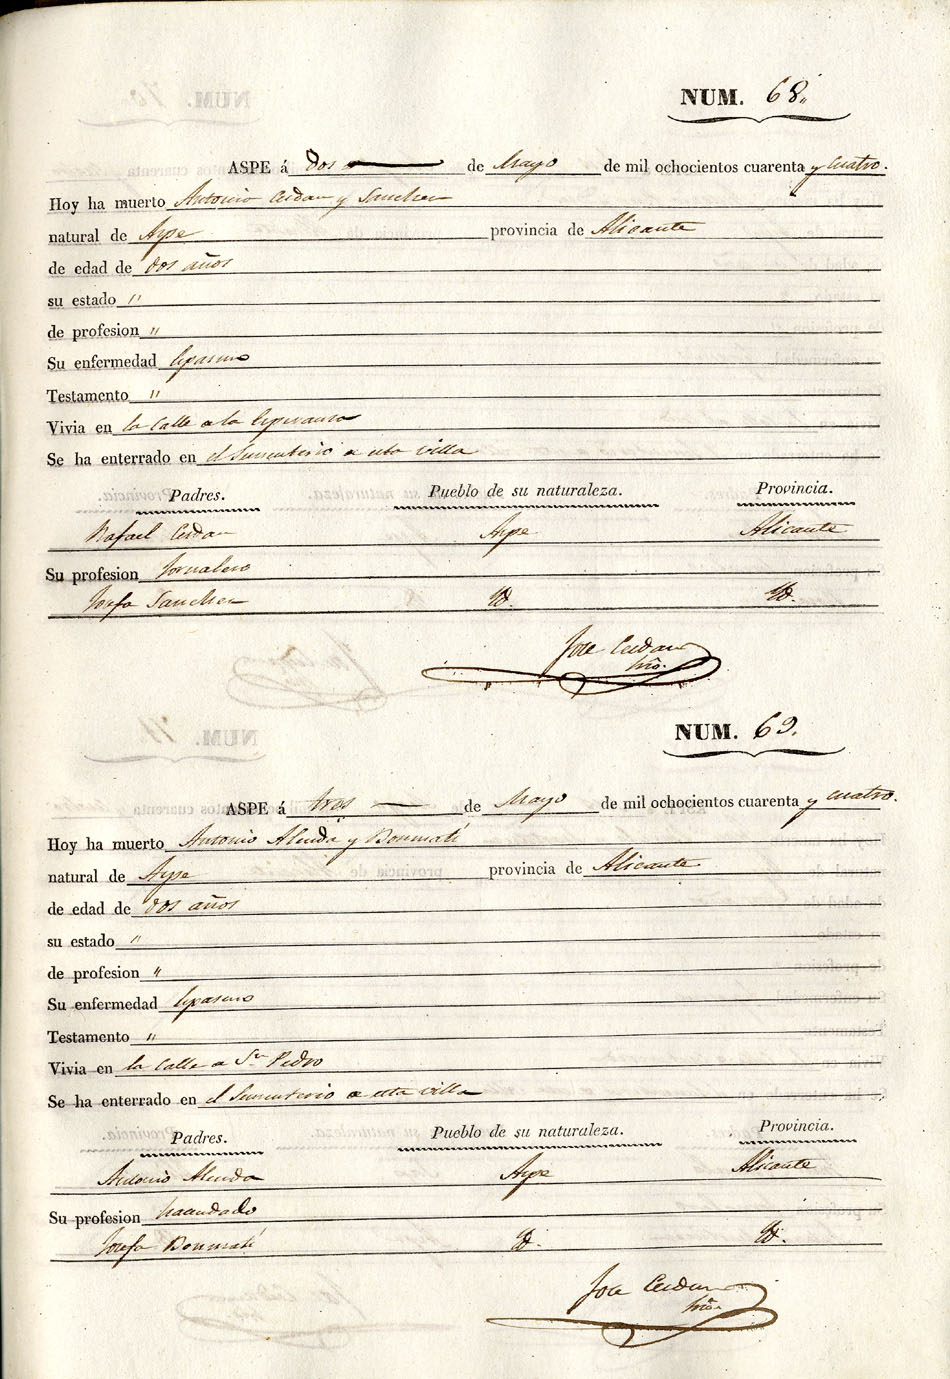 NUM. 68.
ASPE á dos de Mayo de mil ochocientos cuarenta y cuatro.
Hoy ha muerto Antonio Cerdan y Sanchez
natural de Aspe provincia de Alicante
de edad de dos años
su estado "
de profesion "
Su enfermedad Espasmo
Testamento "
Vivia en la Calle de la Esperanza
Se ha enterrado en el Sementerio de esta villa
Padres. Pueblo de su naturaleza. Provincia.
Rafael Cerdan Aspe Alicante
Su profesion Jornalero
Josefa Sanchez Yd. Yd.
Jose Cerdan
NUM. 69.
ASPE á tres de Mayo de mil ochocientos cuarenta y cuatro.
Hoy ha muerto Antonio Almda y Bonmatí
natural de Aspe provincia de Alicante
de edad de dos años
su estado "
de profesion "
Su enfermedad Espasmo
Testamento "
Vivia en la Calle de Sn Pedro
Se ha enterrado en el Sementerio de esta villa
Padres. Pueblo de su naturaleza. Provincia.
Antonio Aspe Alicante
Su profesion hacendado
Josefa Bonmatí Yd. Yd.
Jose Cerdan